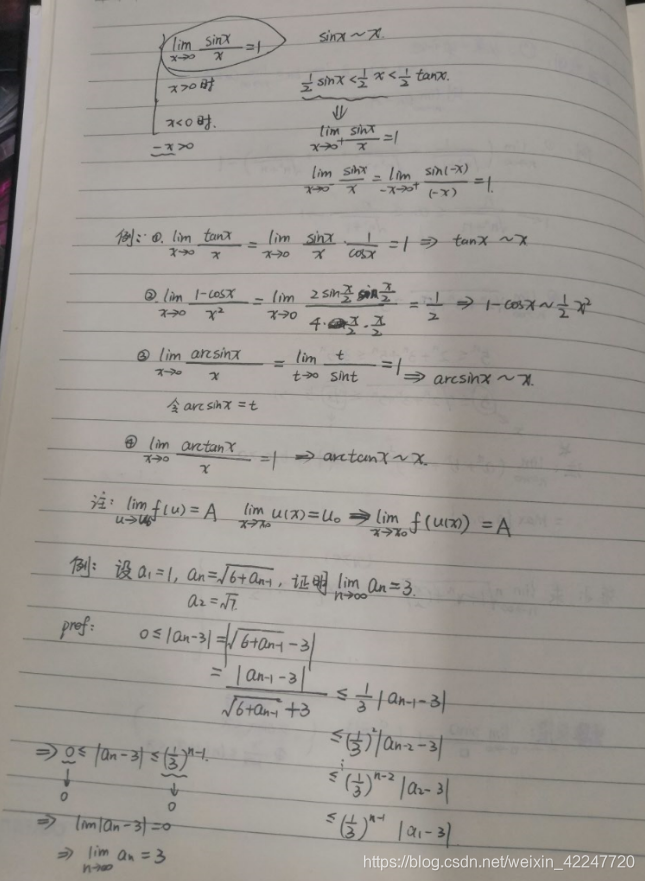 lim_{x→0} sinx/x = 1    sinx ~ x.
x>0时    1/2 sinx < 1/2 x < 1/2 tanx.
⇓
x<0时.    lim_{x→0⁺} sinx/x = 1
-x>0
lim_{x→0⁻} sinx/x = lim_{-x→0⁺} sin(-x)/(-x) = 1.
例: ①. lim_{x→0} tanx/x = lim_{x→0} sinx/x · 1/cosx = 1 ⇒ tanx ~ x
②. lim_{x→0} 1-cosx/x² = lim_{x→0} 2 sin x/2 sin x/2 / 4· x/2 · x/2 = 1/2 ⇒ 1-cosx ~ 1/2 x²
③ lim_{x→0} arcsinx/x = lim_{t→0} t/sint = 1 ⇒ arcsinx ~ x.
令 arcsinx = t
④ lim_{x→0} arctanx/x = 1 ⇒ arctanx ~ x.
注: lim_{u→u₀} f(u) = A    lim_{x→x₀} u(x) = u₀ ⇒ lim_{x→x₀} f(u(x)) = A
例: 设 a₁=1, aₙ=√(6+aₙ₋₁), 证明 lim_{n→∞} aₙ = 3.
a₂=√7.
prof: 0 ≤ |aₙ-3| = |√(6+aₙ₋₁) - 3|
= |aₙ₋₁-3| / √(6+aₙ₋₁)+3 ≤ 1/3 |aₙ₋₁-3|
≤ (1/3)² |aₙ₋₂-3|
⋮
⇒ 0 ≤ |aₙ-3| ≤ (1/3)ⁿ⁻¹.    ≤ (1/3)ⁿ⁻² |a₂-3|
↓ ↓
0 0
⇒ lim|aₙ-3| = 0    ≤ (1/3)ⁿ⁻¹ |a₁-3|
⇒ lim_{n→∞} aₙ = 3
https://blog.csdn.net/weixin_42247720